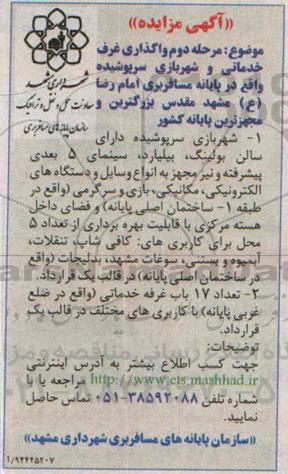 «آگهی مزایده»
موضوع: مرحله دوم واگذاری غرف
خدماتی و شهربازی سرپوشیده
واقع در پایانه مسافربری امام رضا
(ع) مشهد مقدس بزرگترین و
مجهزترین پایانه کشور
شهرداری مشهد
معاونت حمل و نقل و ترافیک
سازمان پایانه های مسافربری
۱- شهربازی سرپوشیده دارای
سالن بولینگ، بیلیارد، سینمای ۵ بعدی
پیشرفته و نیز مجهز به انواع وسایل و دستگاه های
الکترونیکی، مکانیکی، بازی و سرگرمی (واقع در
طبقه ۱- ساختمان اصلی پایانه) و فضای داخل
هسته مرکزی با قابلیت بهره برداری از تعداد ۵
محل برای کاربری های: کافی شاپ، تنقلات،
آبمیوه و بستنی، سوغات مشهد، بدلیجات (واقع
در ساختمان اصلی پایانه) در قالب یک قرارداد.
۲- تعداد ۱۷ باب غرفه خدماتی (واقع در ضلع
غربی پایانه) با کاربری های مختلف در قالب یک
قرارداد.
توضیحات:
جهت کسب اطلاع بیشتر به آدرس اینترنتی
http://www.cts.mashhad.ir مراجعه یا با
شماره تلفن ۳۸۵۹۲۰۸۸-۰۵۱ تماس حاصل
نمایید.
«سازمان پایانه های مسافربری شهرداری مشهد»
۱/۹۴۴۲۵۲۰۷